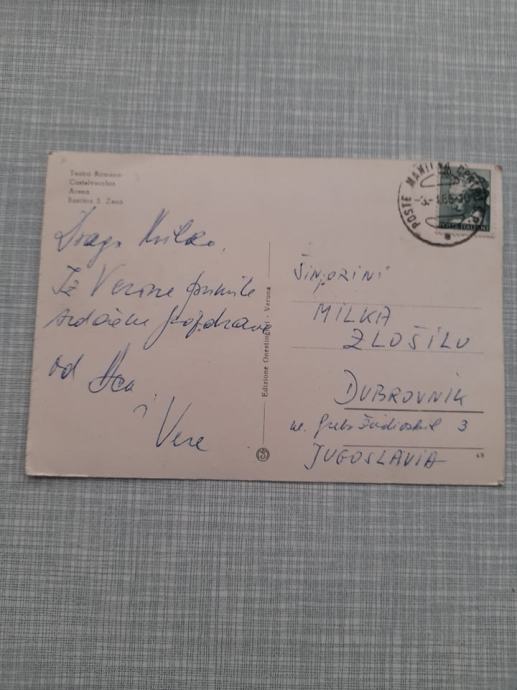 Teatro Romano
Castelvecchio
Arena
Basilica S. Zeno
Draga Milka,
Iz Verone primite
srdačan pozdrav
od
i
Vere
Edizione - Verona
POSTE
POSTE ITALIANE
MILKA
ZLOŠILO
DUBROVNIK
3
JUGOSLAVIA